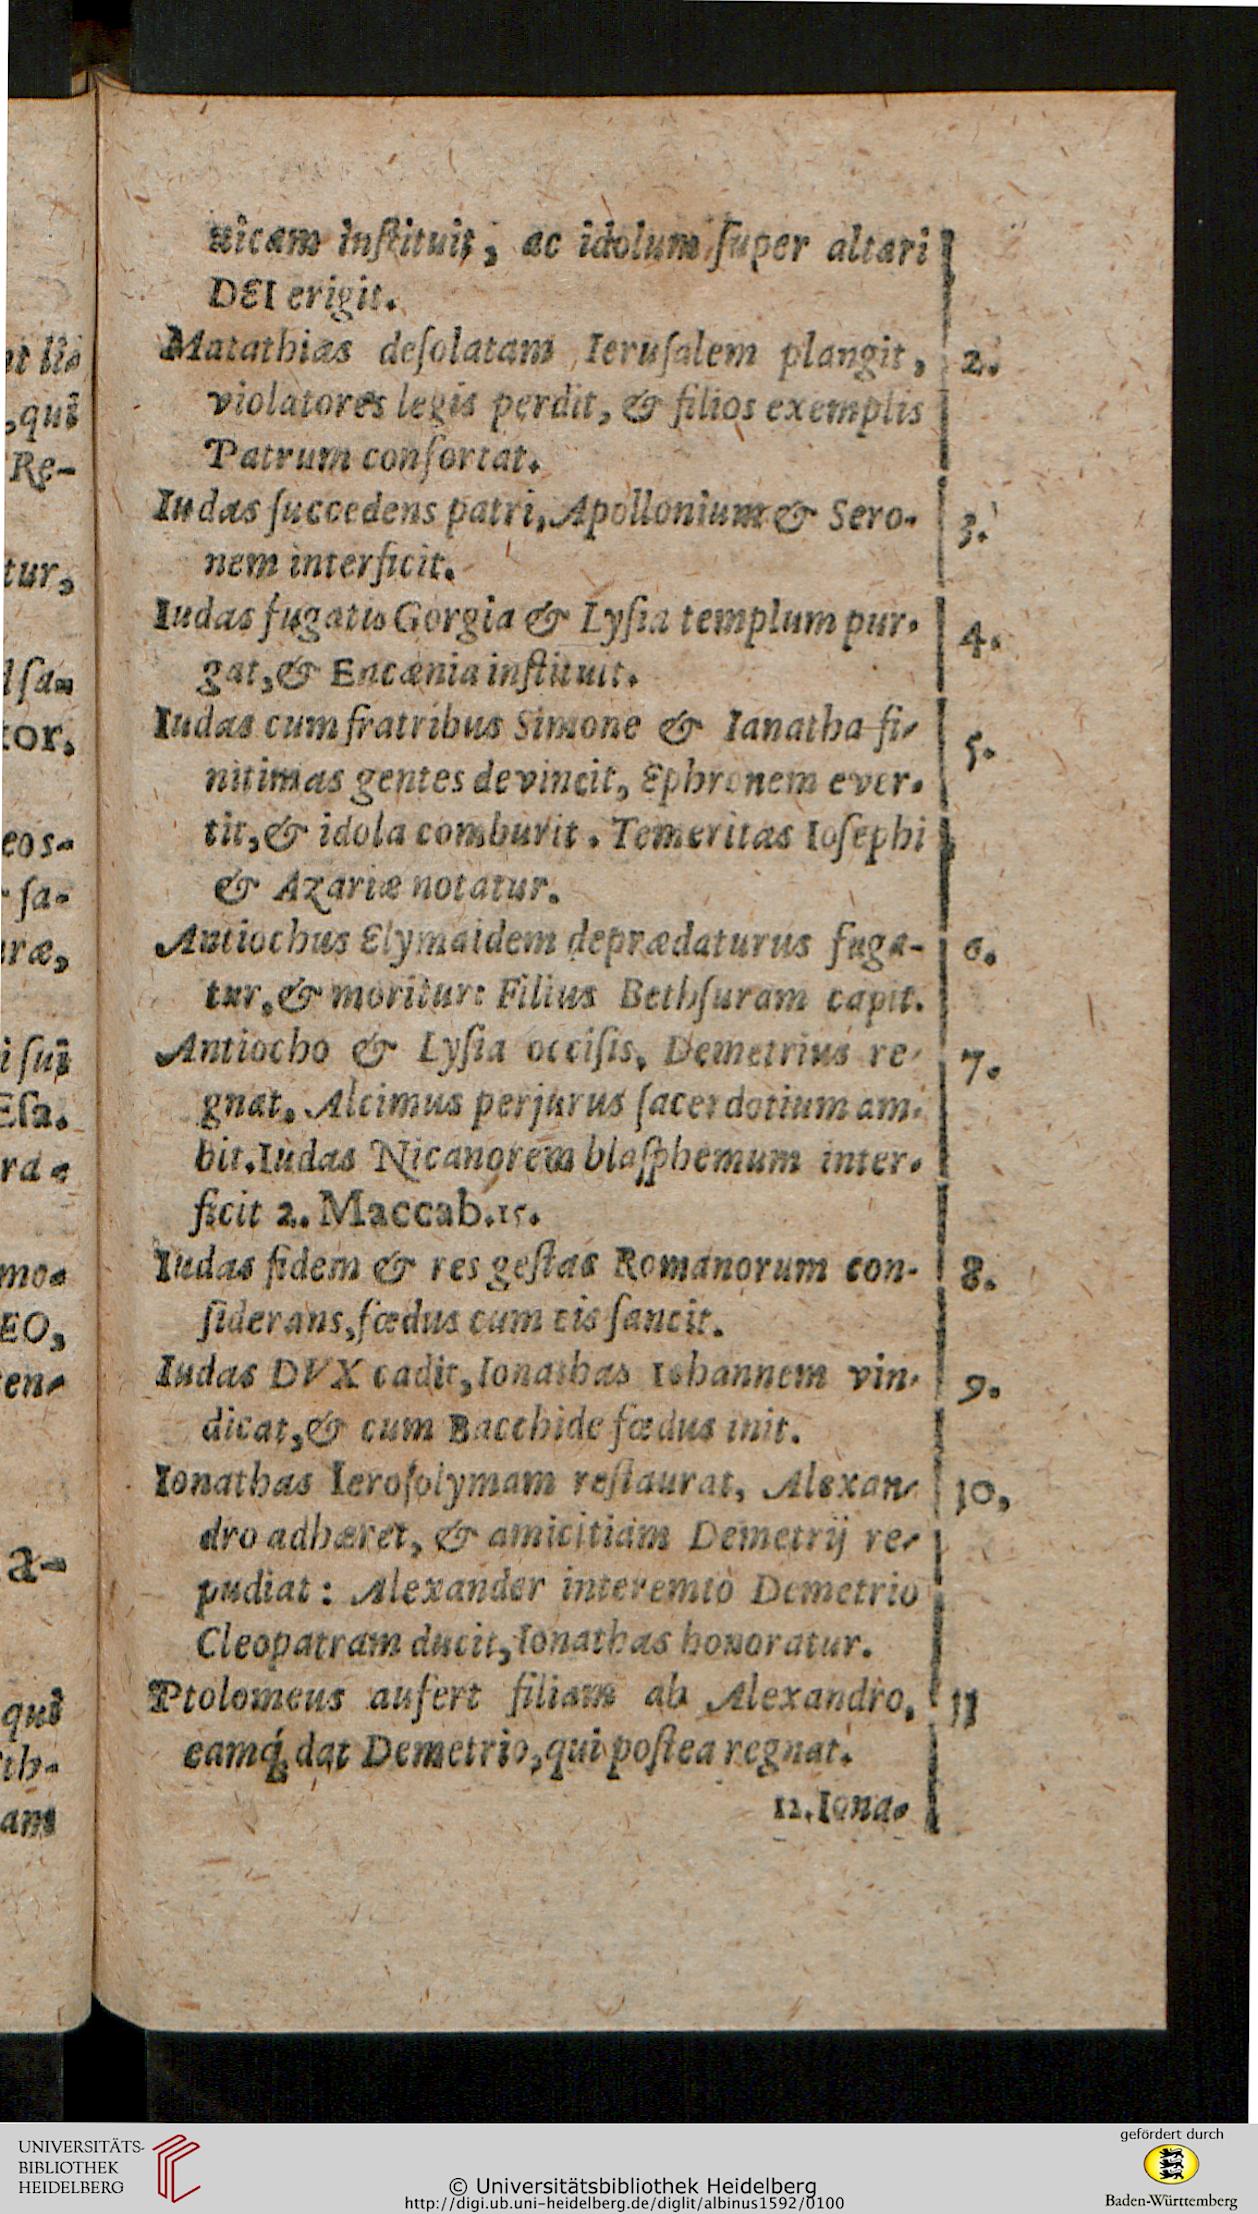 nicam inſtituit, ac idolum ſuper altari
DEI erigit.
Matathias deſolatam Ieruſalem plangit, 2.
violatores legis perdit, & filios exemplis
Patrum confortat.
Iudas ſuccedens patri, Apollonium & Sero- 3.
nem interficit.
Iudas fugatis Gorgia & Lyſia templum pur- 4.
gat, & Encænia inſtituit.
Iudas cum fratribus Simone & Ianatha fi- 5.
nitimas gentes devincit, Ephronem ever-
tit, & idola comburit. Temeritas Ioſephi
& Azariæ notatur.
Antiochus Elymaidem deprædaturus fuga- 6.
tur, & moritur: Filius Bethſuram capit.
Antiocho & Lyſia occiſis, Demetrius re- 7.
gnat. Alcimus perjurus ſacerdotium am-
bit. Iudas Nicanorem blaſphemum inter-
ficit 2. Maccab. 15.
Iudas fidem & res geſtas Romanorum con- 8.
ſiderans, fœdus cum eis ſancit.
Iudas DVX cadit, Ionathas Iohannem vin- 9.
dicat, & cum Bacchide fœdus init.
Ionathas Ieroſolymam reſtaurat, Alexan- 10,
dro adhæret, & amicitiam Demetrij re-
pudiat: Alexander interemto Demetrio
Cleopatram ducit, Ionathas honoratur.
Ptolomeus aufert filiam ab Alexandro, 11
eamq́; dat Demetrio, qui poſtea regnat.
12. Iona-
,qui
Re-
tur,
tor,
eos-
ſa-
ræ,
i ſui
Eſa.
mo-
EO,
en-
a-
qui
th-
am
UNIVERSITÄTS-
BIBLIOTHEK
HEIDELBERG
© Universitätsbibliothek Heidelberg
http://digi.ub.uni-heidelberg.de/diglit/albinus1592/0100
gefördert durch
Baden-Württemberg